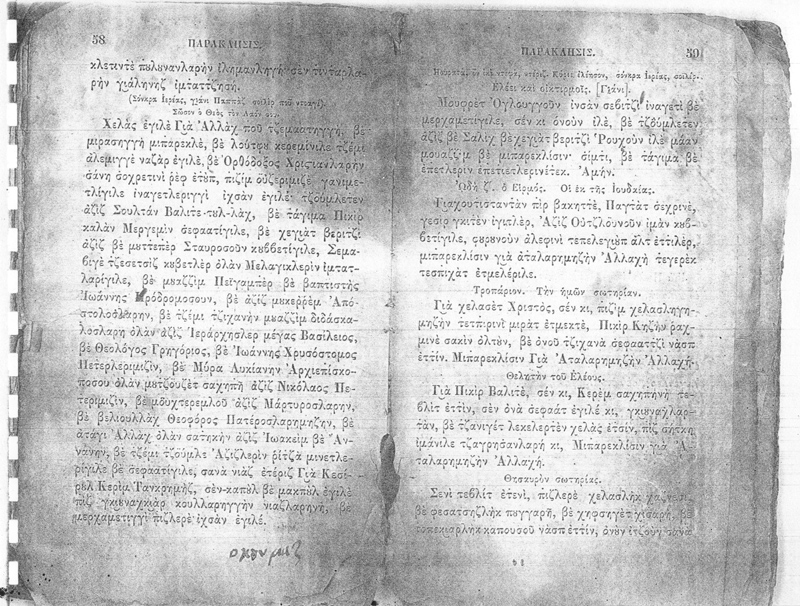 58
ΠΑΡΑΚΛΗΣΙΣ.
κλετιντὲ πουλουνανλαρὴν ἐλημανληγὴ σὲν
ρὴν γιάληνηζ ἰμταττζησή.
(Σόνκρα Ἱερέας, γιάνι Παππᾶζ σοϊλέρ
Σῶσον ὁ Θεὸς τὸν Λαόν σου.
Χελὰς ἐγιλὲ Γιὰ Ἀλλὰχ ποῦ τζεμαατηγγὴ, βὲ
μιρασηγγὴ μπαρεκλὲ, βὲ λούτφου κερεμίνιλε τζέμι
ἀλεμιγγὲ ναζὰρ ἐγιλὲ, βὲ Ὀρθόδοξος Χριστιανλαρὴν
σάνη σοχρετινὶ ῥὲφ ἐτοὺπ, πιζὶμ οὐζεριμιζὲ γανιμε-
τλίγιλε ἰναγετλεριγγὶ ἰχσὰν ἐγιλὲ· τζούμλετεν
ἀζὶζ Σουλτὰν Βαλιτὲ-τουλ-λὰχ, βὲ τάγιμα Πικὶρ
καλὰν Μεργεμὶν σεφαατίγιλε, βὲ χεγιὰτ βεριτζὶ
ἀζὶζ βὲ μυττεπὲρ Σταυροσοὺν κουββετίγιλε, Σεμα-
βιγὲ τζεσετσὶζ κουβετλὲρ ὀλὰν Μελαγικλερὶν ἰμτατ-
λαρίγιλε, βὲ μουαζζὶμ Πεϊγαμπὲρ βὲ βαπτιστὴς
Ἰωάννης Πρόδρομοσουν, βὲ ἀζὶζ μουκερρὲμ Ἀπό-
στολοσλαρην, βὲ τζέμι τζιχανὴν μουαζζὶμ διδάσκα-
λοσλαρη ὀλὰν ἀζὶζ Ἱεράρχησλερ μέγας Βασίλειος,
βὲ Θεολόγος Γρηγόριος, βὲ Ἰωάννης Χρυσόστομος
Πετερλεριμιζὶν, βὲ Μύρα Λυκίανην Ἀρχιεπίσκο-
ποσου ὀλὰν μυτζουζὲτ σαχηπὴ ἀζὶζ Νικόλαος Πε-
τεριμιζὶν, βὲ μουχτερεμλοῦ ἀζὶζ Μάρτυροσλαρην,
βὲ βελιουλλὰχ Θεοφόρος Πατέροσλαρημηζην, βὲ
ἀτάγι Ἀλλὰχ ὀλὰν σατηκὴν ἀζὶζ Ἰωακεὶμ βὲ Ἄν-
νανην, βὲ τζέμι τζουμλὲ Ἀζιζλερὶν ῥίτζα μινετλε-
ριγιλὲ βὲ σεφαατίγιλε, σανὰ νιὰζ ἐτέριζ Γιὰ Κεσὶ-
ροὺλ Κερὶμ Τανκρημὴζ, σὲν-καποὺλ βὲ μακποὺλ ἐγιλὲ
πὶζ γκουναχκιὰρ κουλλαρηγγὴν νιαζλαρηνὴ, βὲ
μερχαμετιγγὶ πιζλερὲ ἰχσὰν ἐγιλέ.
ΠΑΡΑΚΛΗΣΙΣ.
59
Κύριε ἐλέησον, σόνκρα Ἱερέας, σοϊλέρ.
Ἐλέει καὶ οἰκτιρμοῖς. [Γιάνι].
Μουφρὲτ Ὀγλουγγοῦν ἰνσὰν σεβιτζὶ ἰναγετὶ βὲ
μερχαμετίγιλε, σέν κι ὀνοῦν ἰλὲ, βὲ τζούμλετεν
ἀζὶζ βὲ Σαλὶχ βὲχεγιὰτ βεριτζὶ Ῥουχοῦν ἰλὲ μαὰν
μουαζζὶμ βὲ μιπαρεκλίσιν· σίμτι, βὲ τάγιμα βὲ
ἐπετλερὶν ἐπετιετλερινέτεκ. Ἀμήν.
Ὠδὴ ζ΄. ὁ Εἱρμός. Οἱ ἐκ τῆς Ἰουδαίας.
Γιαχουτιστανταν πὶρ βακηττὲ, Παγτὰτ σεχρινὲ,
γεσὶρ γκιτὲν ἰγιτλὲρ, Ἀζὶζ Οὐτζλουνοῦν ἰμὰν κουβ-
βετίγιλε, φουρουνοῦν ἀλεφινὶ τεπελεγιοὺπ ἀλτ ἐττιλὲρ,
μιπαρεκλίσιν γιὰ ἀταλαρημηζὴν Ἀλλαχὴ τεγερὲκ
τεσπιχὰτ ἐτμελέριλε.
Τροπάριον. Τὴν ἡμῶν σωτηρίαν.
Γιὰ χελασὲτ Χριστὸς, σέν κι, πιζὶμ χελασληγη-
μηζὴν τετπιρινὶ μιρὰτ ἐτμεκτὲ, Πικὶρ Κηζὴν ῥαχ-
μινὲ σακὶν ὀλτοὺν, βὲ ὀνοῦ τζιχανὰ σεφααττζὶ νὰσπ
ἐττίν. Μιπαρεκλίσιν Γιὰ Ἀταλαρημηζὴν Ἀλλαχή.
Θελητὴν τοῦ Ἐλέους.
Γιὰ Πικὶρ Βαλιτὲ, σέν κι, Κερὲμ σαχηπηνὴ τε-
βλὶτ ἐττὶν, σὲν ὀνὰ σεφαὰτ ἐγιλέ κι, γκιουναχλαρ-
τὰν, βὲ τζανιγὲτ λεκελερτὲν χελὰς ἐτσὶν, πὶζ
ἰμάνιλε τζαγρησανλαρή κι, Μιπαρεκλίσιν γιὰ Ἀ-
ταλαρημηζὴν Ἀλλαχή.
Θησαυρὸν σωτηρίας.
Σενὶ τεβλὶτ ἐτενὶ, πιζλερὲ χελασλὴκ χαζνεσὶ,
βὲ φεσατσηζλὴκ πουγγαρὴ, βὲ χηφσηγὲτ χισαρὴ, βὲ
καπουσοῦ νὰσπ ἐττὶν,